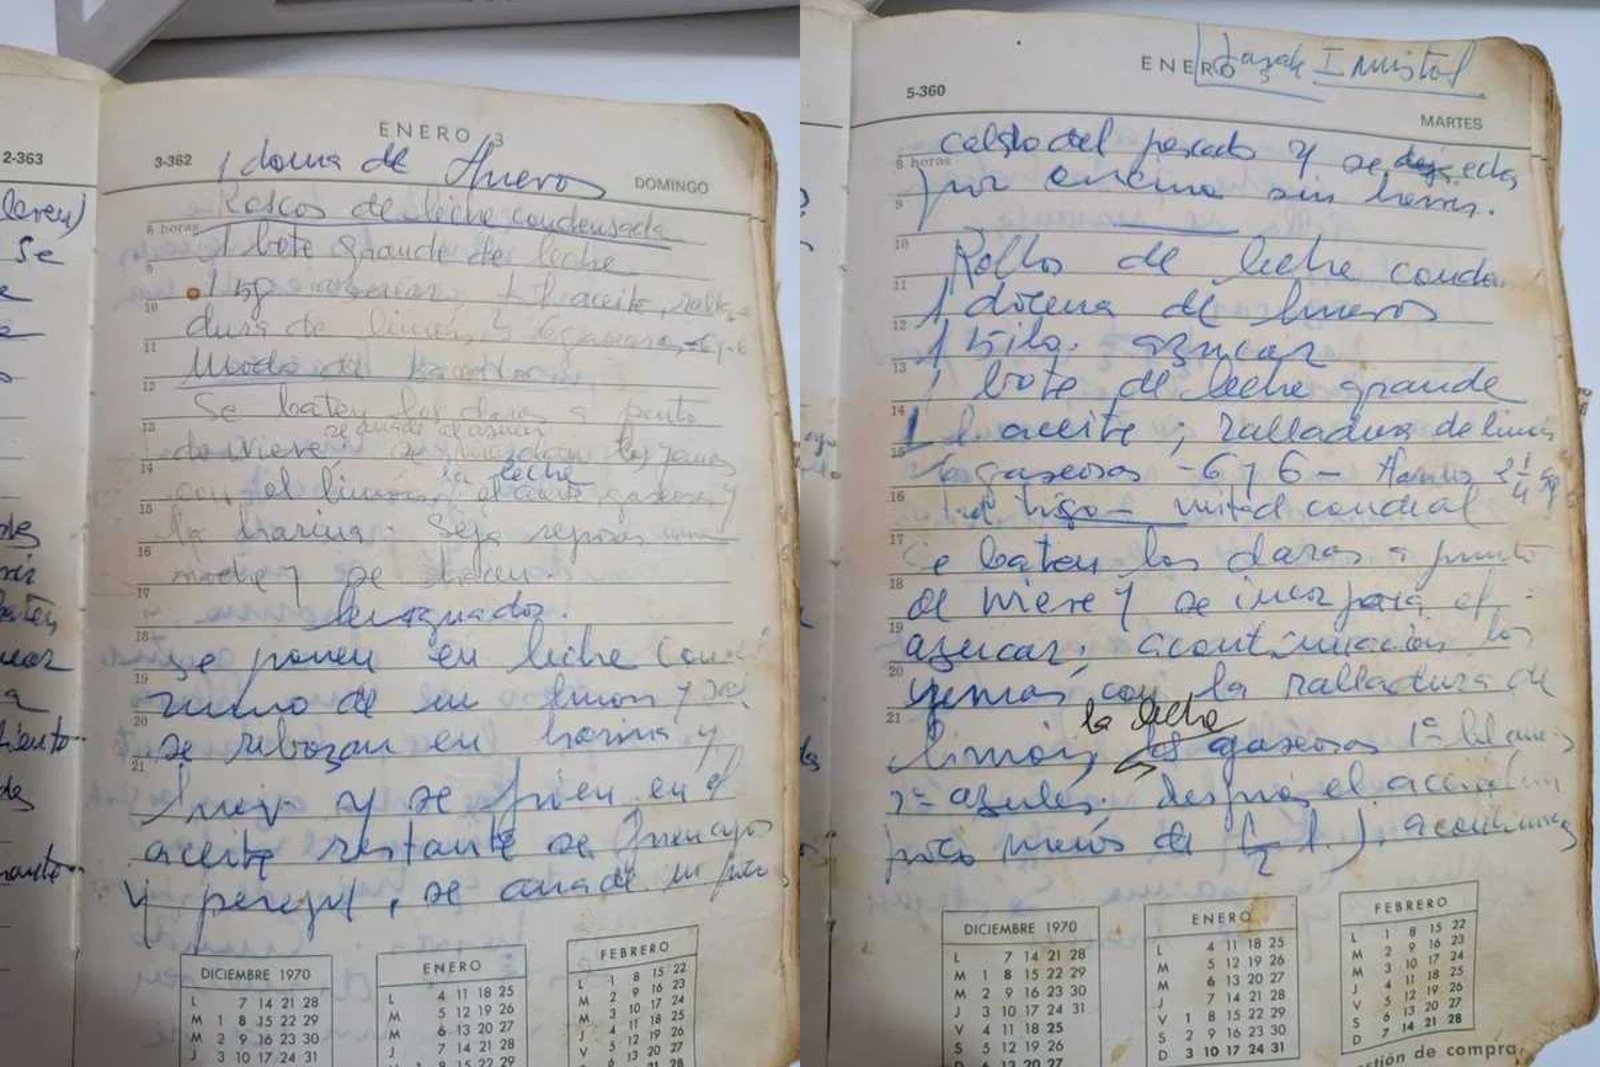 2-363
se
ENERO 3
3-362
DOMINGO
1 doma de Huevos
Roscos de leche condensada
8 horas
1 bote grande de leche
9
1 kg azucar, 1 l aceite, ralla-
10
dura de limón, 6 gaseosas, 6 y 6
11
Modo de
12
Se baten las claras a punto
13
se añade el azucar
de nieve, se mezclan las yemas
14
la leche
con el limón, el aceite gaseosas y
15
la harina. Seja reposar una
16
noche y se hacen.
17
lenguados.
18
se ponen en leche con el
19
zumo de un limon y sal
20
se rebozan en harina y
21
huevo y se frien en el
aceite restante se ajos
y perejil, se añade un poco
DICIEMBRE 1970
L 7 14 21 28
M 1 8 15 22 29
M 2 9 16 23 30
J 3 10 17 24 31
ENERO
L 4 11 18 25
M 5 12 19 26
M 6 13 20 27
J 7 14 21 28
8 15 22 29
FEBRERO
L 1 8 15 22
M 2 9 16 23
M 3 10 17 24
J 4 11 18 25
V 5 12 19 26
6 13 20 27
7 14 21 28
ENERO 5
5-360
MARTES
caldo del pescado y se echa
8 horas
por encima sin hervir.
9
10
Rollos de leche conden
11
1 docena de huevos
12
1 kilo. azucar
13
1 bote de leche grande
14
1 l. aceite; ralladura de limón
15
gaseosas - 6 y 6 - Harina 2 1/4 kg
16
trigo - mitad candeal
17
Se baten las claras a punto
18
de nieve y se incorpora el
19
azucar; acontinuación las
20
yemas con la ralladura de
21
la leche
limón, las gaseosas 1º blancas
2º azules. despues el aceite (un
poco menos de 1/2 l.). acontinuas
DICIEMBRE 1970
L 7 14 21 28
M 1 8 15 22 29
M 2 9 16 23 30
J 3 10 17 24 31
V 4 11 18 25
S 5 12 19 26
D 6 13 20 27
ENERO
L 4 11 18 25
M 5 12 19 26
M 6 13 20 27
J 7 14 21 28
V 1 8 15 22 29
S 2 9 16 23 30
D 3 10 17 24 31
FEBRERO
L 1 8 15 22
M 2 9 16 23
M 3 10 17 24
J 4 11 18 25
V 5 12 19 26
S 6 13 20 27
D 7 14 21 28
stión de compra